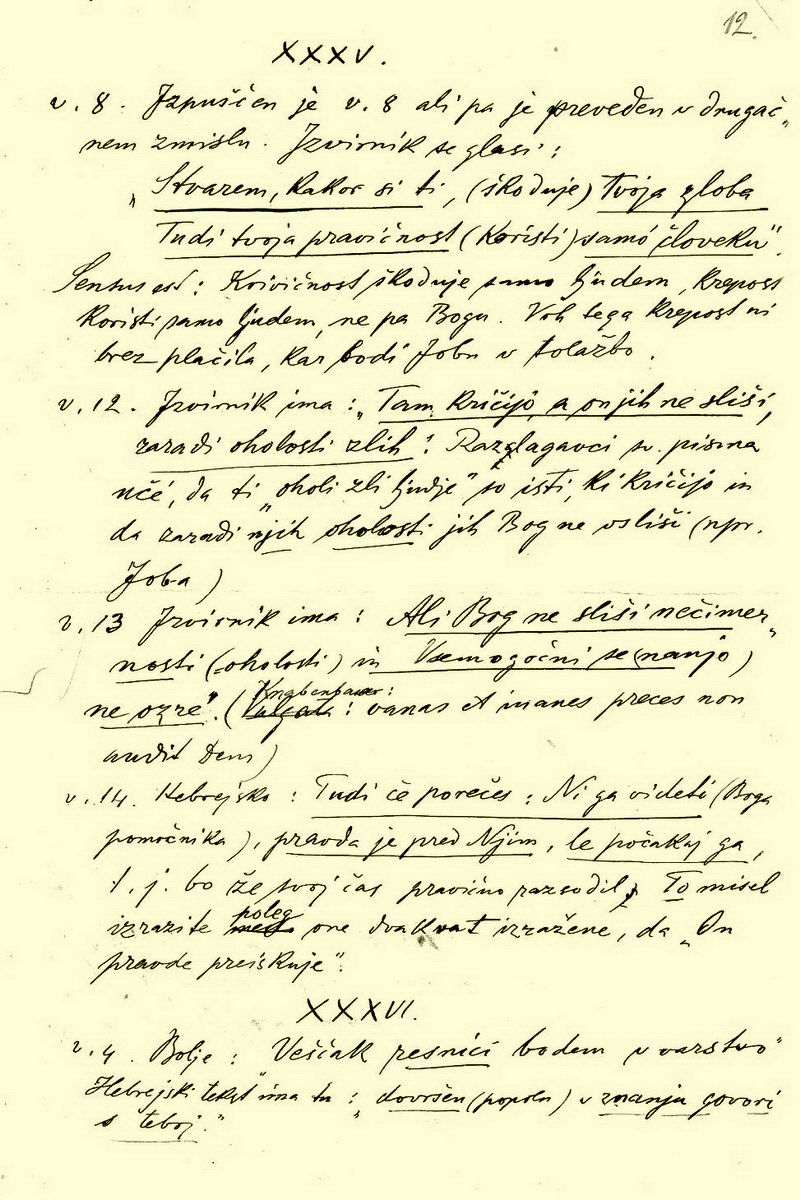 12.
XXXV.
v. 8. Izpuščen je v. 8 ali pa je preveden v drugač„
nem zmislu. Izvirnik se glasi:
„Stvarem, kakor si ti, (škoduje) tvoja zloba
Tudi tvoja pravičnost (koristi) samó človeku".
Sensus est: Krivičnost škoduje samo ljudem, krepost
koristi samo ljudem, ne pa Bogu. Vrh tega krepost ni
brez plačila, kar bodi Jobu v tolažbo.
v. 12. Izvirnik ima: „Tam kričijó, a on jih ne sliši,
zaradi oholosti zlih". Razlagavci sv. pisma
učé, da ti „oholi zli ljudje" so isti, ki kričijo in
da zaradi njih oholosti jih Bog ne usliši (npr.
Joba)
v. 13 Izvirnik ima: Ali Bog ne sliši nečimer„
nosti (oholosti) in Vsemogočni se (nanjo)
ne ozre". (Knabenbauer: vanas et inanes preces non
audit Deus)
v. 14. Hebrejsko: Tudi če porečeš: Ni ga videti (Boga
pomočnika), pravda je pred Njim, le počakaj ga,
t. j. bo že svoj čas pravično razsodil. To misel
izrazite poleg one dvakrat izražene, da „On
pravde preiskuje".
XXXVI.
v. 4. Bolje: Veščak resnici bodem v varstvo"
Hebrejski tekst ima tu: „dovršen (popoln) v znanju govori
s teboj."